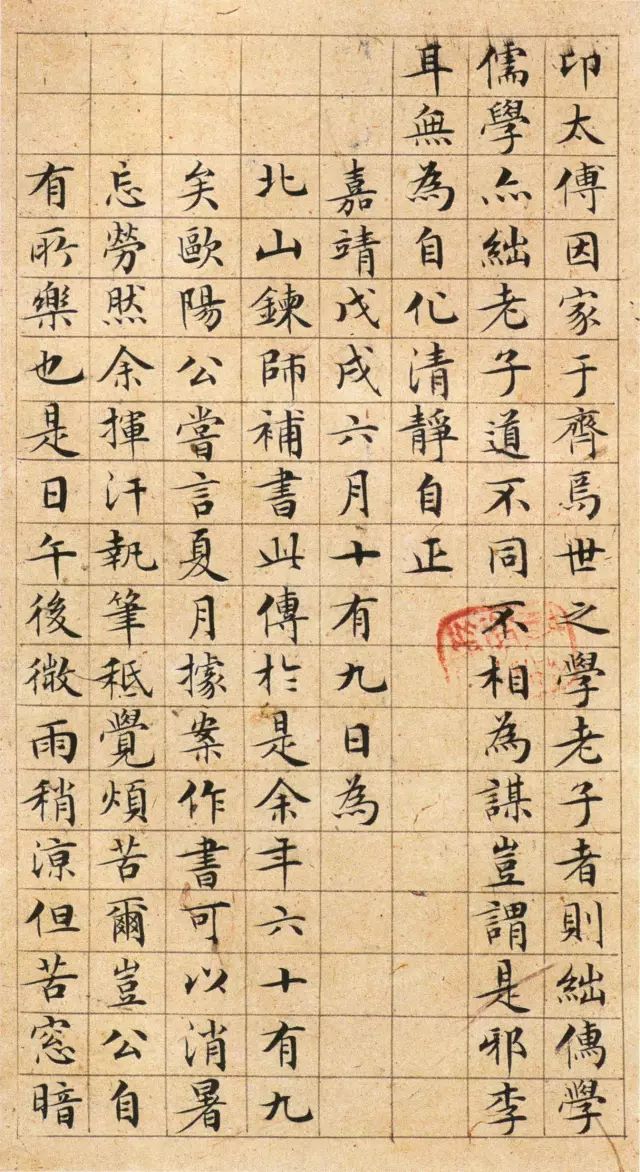 卬太傅因家于齊焉世之學老子者則絀儒學
儒學亦絀老子道不同不相為謀豈謂是邪李
耳無為自化清靜自正
嘉靖戊戌六月十有九日為
北山鍊師補書此傳於是余年六十有九
矣歐陽公嘗言夏月據案作書可以消暑
忘勞然余揮汗執筆秖覺煩苦爾豈公自
有所樂也是日午後微雨稍涼但苦窓暗